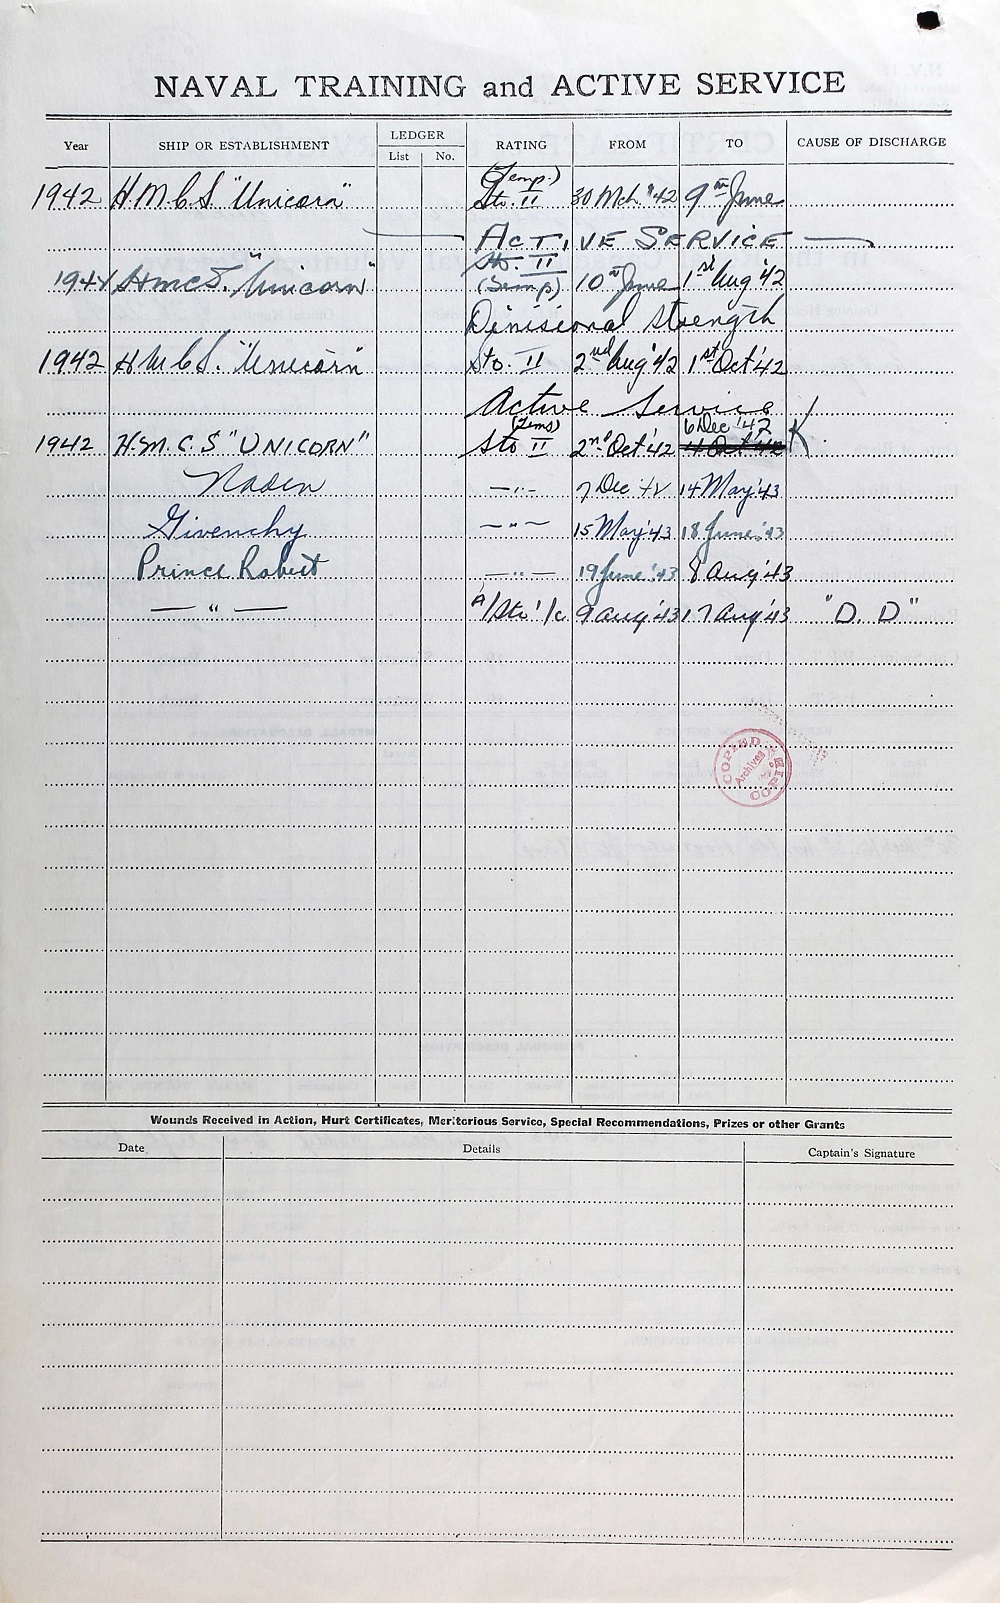 NAVAL TRAINING and ACTIVE SERVICE
Year SHIP OR ESTABLISHMENT LEDGER List No. RATING FROM TO CAUSE OF DISCHARGE
1942 H.M.C.S "Unicorn" (Temp.) Sto. II 30 Mch. '42 9th June
ACTIVE SERVICE
1942 H.M.C.S. "Unicorn" Sto. II (Temp) 10th June 1st Aug '42
Divisional Strength
1942 H.M.C.S. "Unicorn" Sto. II 2nd Aug '42 1st Oct '42
Active Service
1942 H.M.C.S "UNICORN" (Temp) Sto II 2nd Oct '42 6 Dec '42 K
Naden —"— 7 Dec 42 14 May '43
Givenchy —"— 15 May '43 18 June '43
Prince Robert —"— 19 June '43 8 Aug '43
— " — A/Sto 1/c 9 Aug '43 17 Aug '43 "D. D"
COPIED Archives COPIE
Wounds Received in Action, Hurt Certificates, Meritorious Service, Special Recommendations, Prizes or other Grants
Date Details Captain's Signature